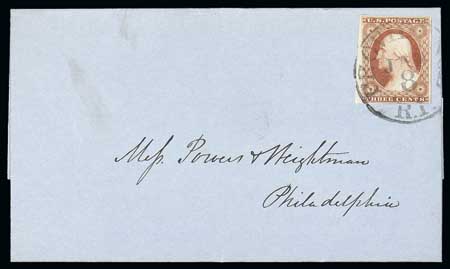 U.S. POSTAGE
THREE CENTS
8
R.I.
Mess. Powers & Weightman
Philadelphia